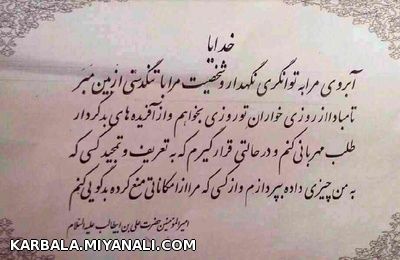 خدایا
آبروی مرا به توانگری نگهدار و شخصیت مرا با تنگدستی از بین مبر
تا مبادا از روزی خواران تو روزی بخواهم و از آفریده های بدکردار
طلب مهربانی کنم و در حالتی قرار گیرم که به تعریف و تمجید کسی که
به من چیزی داده بپردازم و از کسی که مرا از امکاناتی منع کرده بدگویی کنم
امیرالمؤمنین حضرت علی بن ابیطالب علیه السلام
KARBALA.MIYANALI.COM